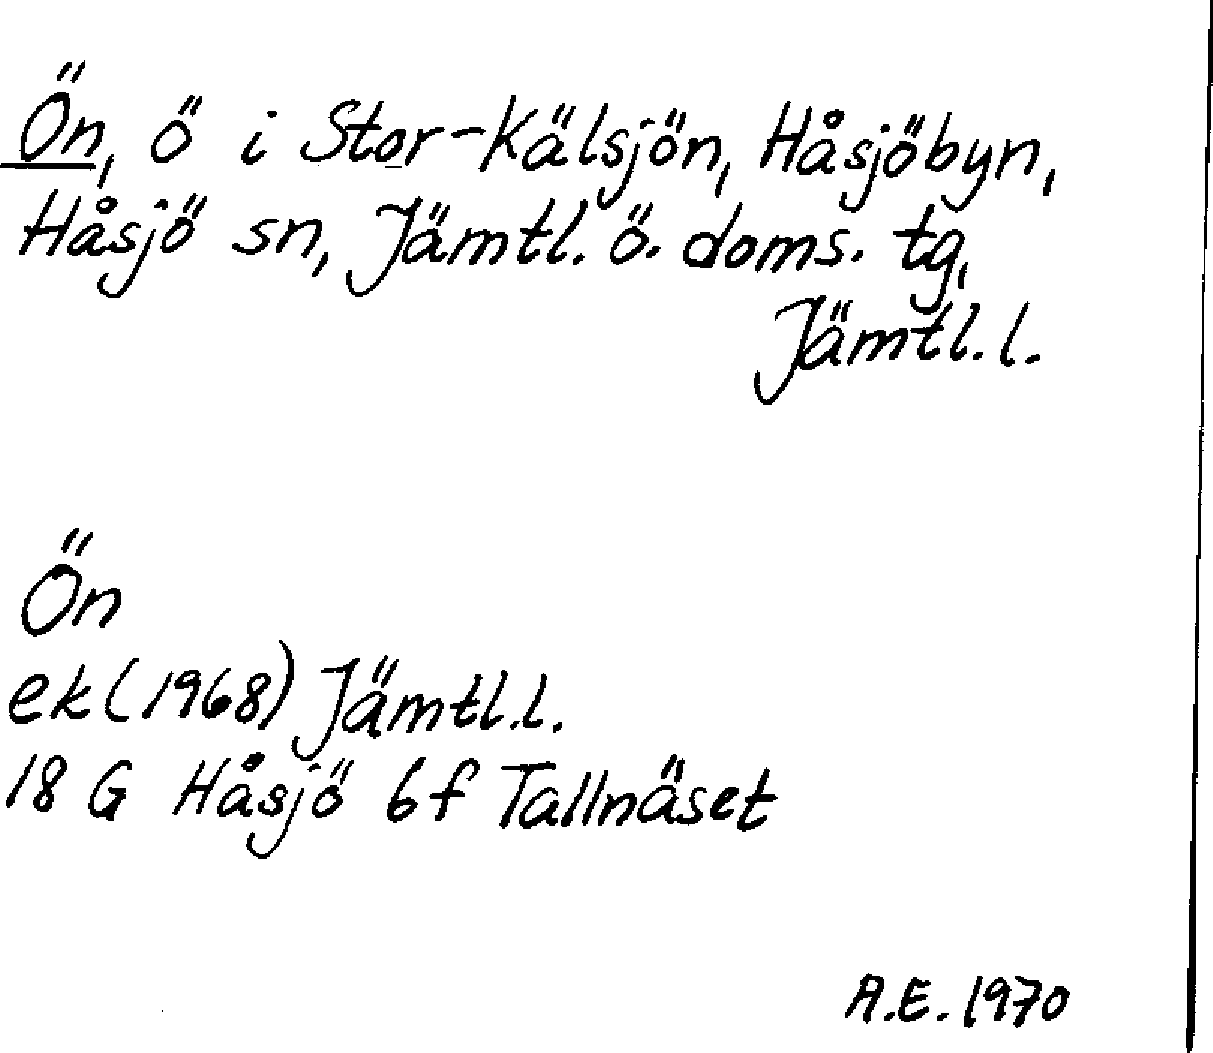 Ön, ö i Stor-Kälsjön, Håsjöbyn,
Håsjö sn, Jämtl. ö. doms. tg,
Jämtl. l.
Ön
ek (1968) Jämtl.l.
18 G Håsjö 6f Tallnäset
A.E. 1970